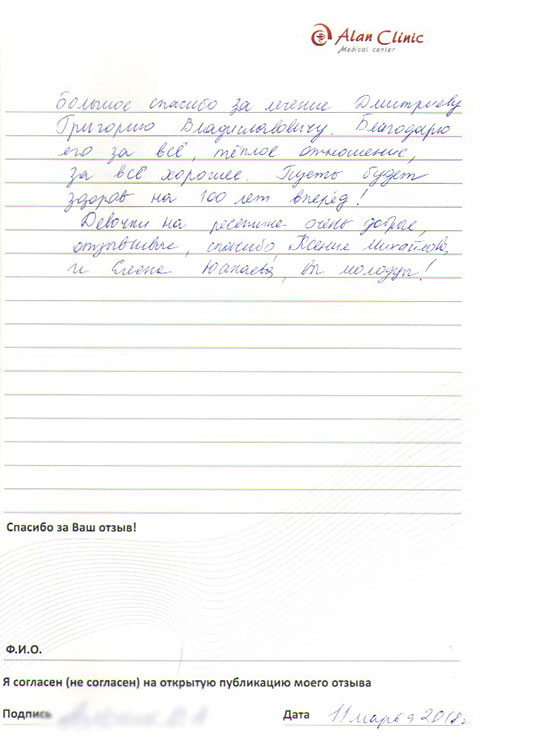 Alan Clinic
Medical center
Большое спасибо за лечение Дмитриеву
Григорию Владиславовичу. Благодарю
его за всё, тёплое отношение,
за всё хорошее. Пусть будет
здоров на 100 лет вперёд!
Девочки на ресепшне очень добрые,
отзывчивые, спасибо, Ксение Михайлова
и Елена, вы молодцы!
Спасибо за Ваш отзыв!
Ф.И.О.
Я согласен (не согласен) на открытую публикацию моего отзыва
Подпись
Дата 11 марта 2018г